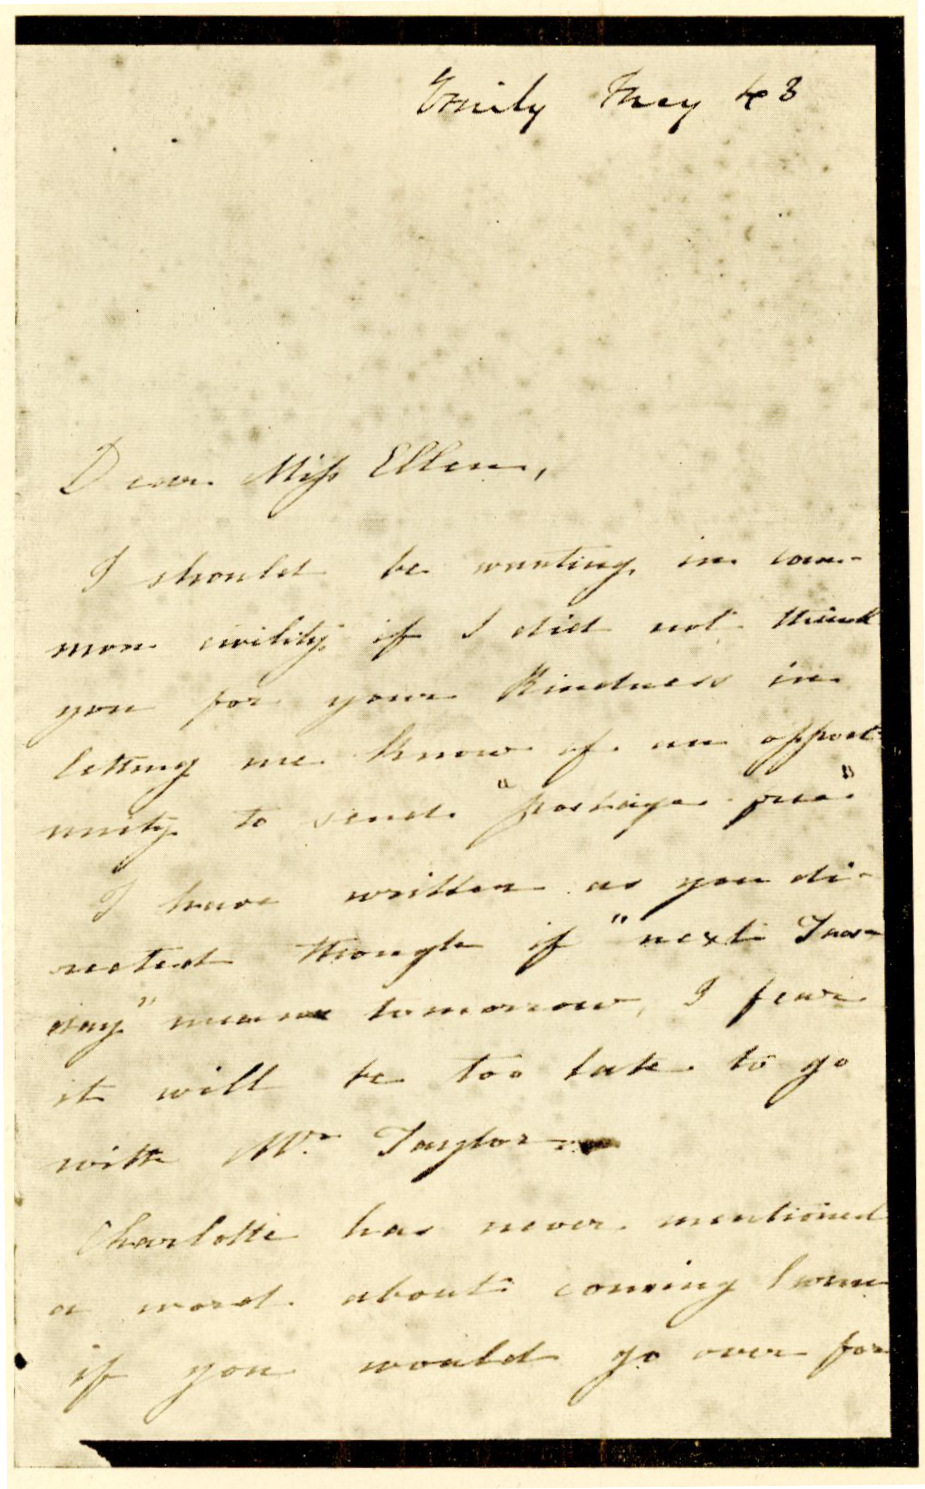 Emily May 43
Dear Miss Ellen,
I should be wanting in com-
mon civility if I did not thank
you for your kindness in
letting me know of an opport-
unity to send "postage free"
I have written as you di-
rected though if "next Tues-
day" means tomorrow, I fear
it will be too late to go
with Mr. Taylor
Charlotte has never mentioned
a word about coming home
if you would go over for